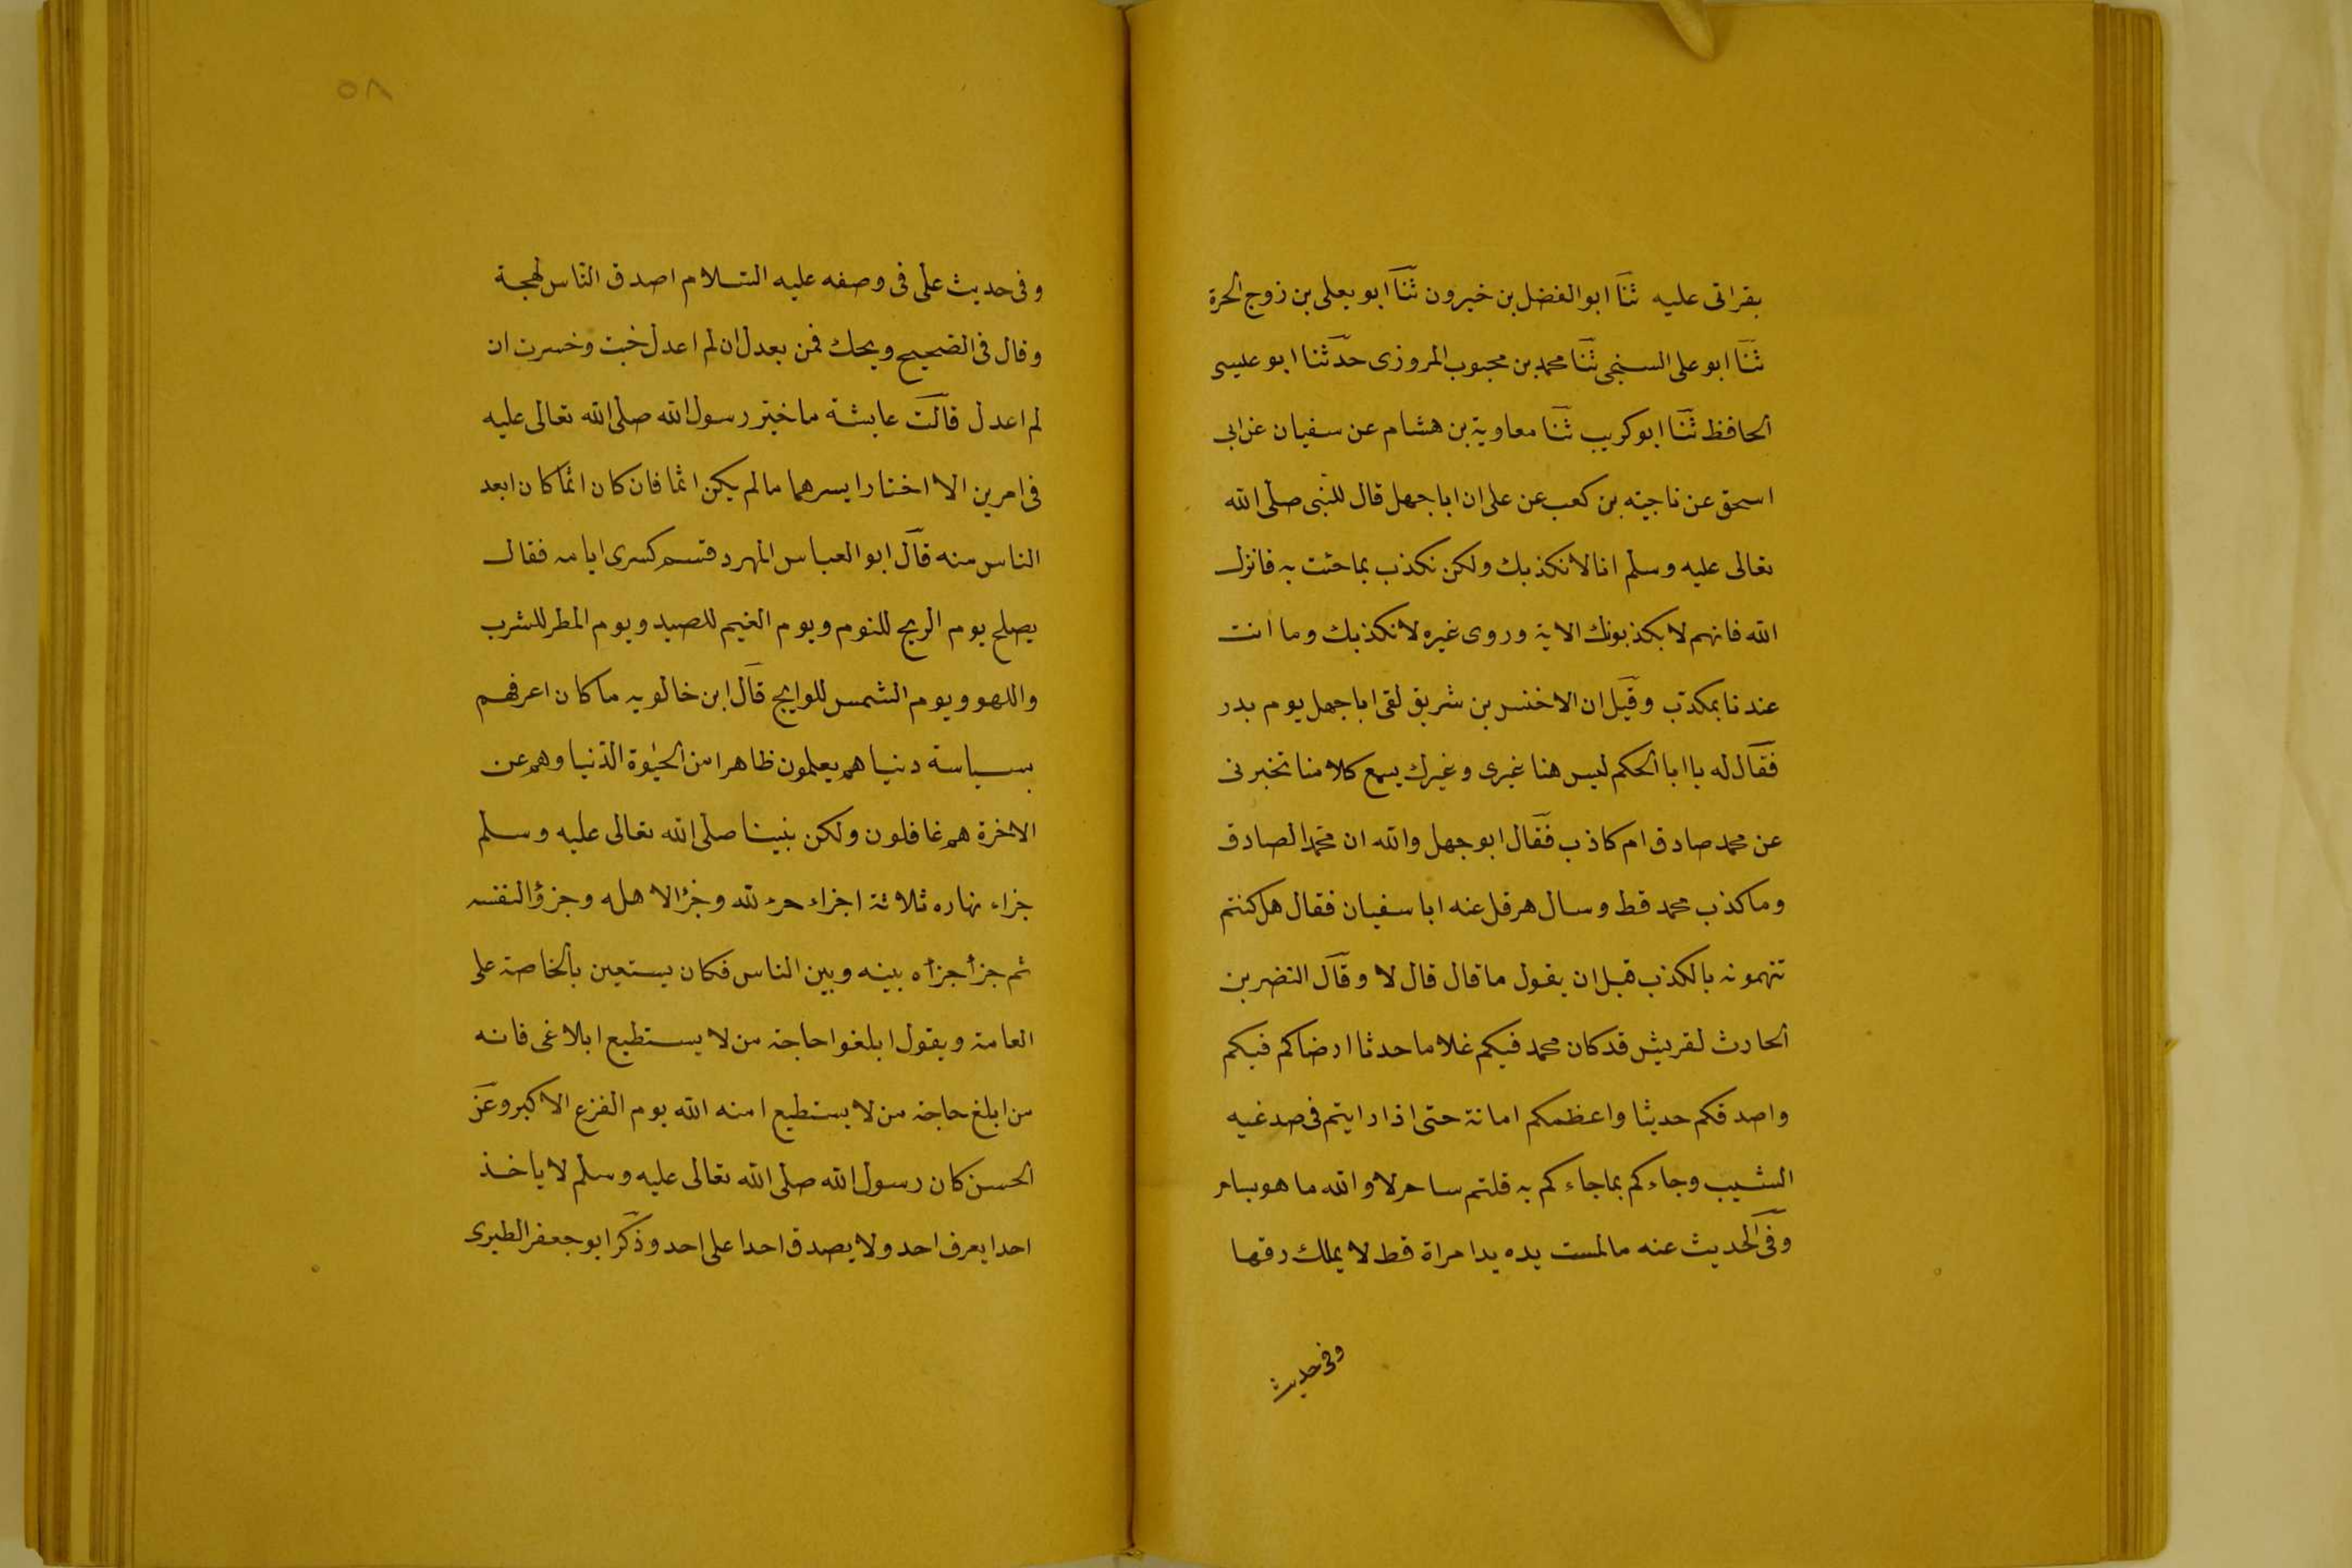 بقراتى عليه ثنا ابو الفضل بن خيرون ثنا ابو يعلى بن زوج الحرة
ثنا ابو على السنجى ثنا محمد بن محبوب المروزى حدثنا ابو عيسى
الحافظ ثنا ابو كريب ثنا معاوية بن هشام عن سفيان عن ابى
اسحق عن ناجيته بن كعب عن على ان ابا جهل قال للنبى صلى الله
تعالى عليه وسلم انا لا نكذبك ولكن نكذب بما جئت به فانزل
الله فانهم لا يكذبونك الاية وروى غيره لا نكذبك وما انت
عندنا بمكذب وقيل ان الاخنس بن شريق لقى ابا جهل يوم بدر
فقال له يا ابا الحكم ليس هنا غيرى وغيرك يسمع كلامنا تخبرنى
عن محمد صادق ام كاذب فقال ابو جهل والله ان محمدا لصادق
وما كذب محمد قط وسال هرقل عنه ابا سفيان فقال هل كنتم
تتهمونه بالكذب قبل ان يقول ما قال قال لا وقال النضر بن
الحارث لقريش قد كان محمد فيكم غلاما حدثا ارضاكم فيكم
واصدقكم حديثا واعظمكم امانة حتى اذا رايتم فى صدغيه
الشيب وجاءكم بما جاءكم به قلتم ساحر لا والله ما هو بساحر
وفى الحديث عنه ما لمست يده يد امراة قط لا يملك رقها
وفى حديث
٥٨
وفى حديث على فى وصفه عليه السلام اصدق الناس لهجة
وقال فى الصحيح ويحك فمن يعدل ان لم اعدل خبت وخسرت ان
لم اعدل قالت عايشة ما خير رسول الله صلى الله تعالى عليه
فى امرين الا اختار ايسرهما ما لم يكن اثما فان كان اثما كان ابعد
الناس منه قال ابو العباس المهرد قسم كسرى ايامه فقال
يصلح يوم الريح للنوم ويوم الغيم للصيد ويوم المطر للشرب
واللهو ويوم الشمس للوايج قال ابن خالويه ما كان اعرفهم
بسياسة دنياهم يعلمون ظاهرا من الحيوة الدنيا وهم عن
الاخرة هم غافلون ولكن نبينا صلى الله تعالى عليه وسلم
جزاء نهاره ثلاثة اجزاء جزء لله وجزا لاهله وجزؤ لنفسه
ثم جزأ جزأه بينه وبين الناس فكان يستعين بالخاصة على
العامة ويقول ابلغوا حاجة من لا يستطيع ابلاغى فانه
من ابلغ حاجة من لا يستطيع امنه الله يوم الفزع الاكبر وعن
الحسن كان رسول الله صلى الله تعالى عليه وسلم لا ياخذ
احدا يعرف احد ولا يصدق احدا على احد وذكر ابو جعفر الطبرى